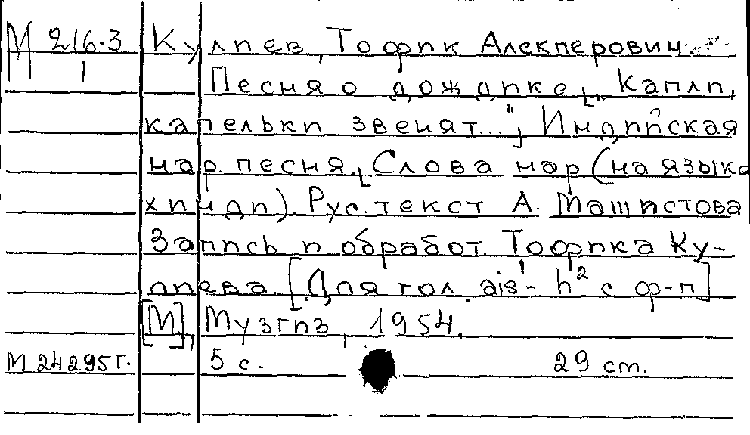 М 216.3 Кулиев, Тофик Алекперович.
1 Песня о дождике ["Капли,
капельки звенят..."], Индийская
нар. песня. [Слова нар. (на языке
хинди). Рус. текст А. Машистова
Запись и обработ. Тофика Ку-
лиева. [Для гол. ais¹- h² с ф-п]
[М], Музгиз, 1954.
М 24295г. 5 с. 29 см.